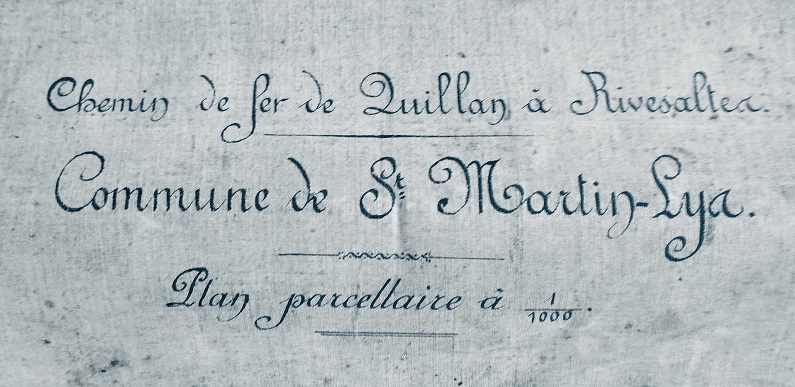 Chemin de fer de Quillan à Rivesaltes.
Commune de St Martin-Lys.
Plan parcellaire à 1/1000.